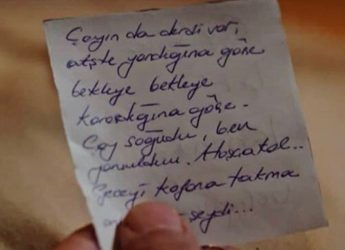 Çayın da derdi var,
ateşte yandığına göre
bekleye bekleye
karardığına göre.
Çay soğudu, ben
yoruldum. Hoşcakal..
Geceyi kafana takma
seydi...